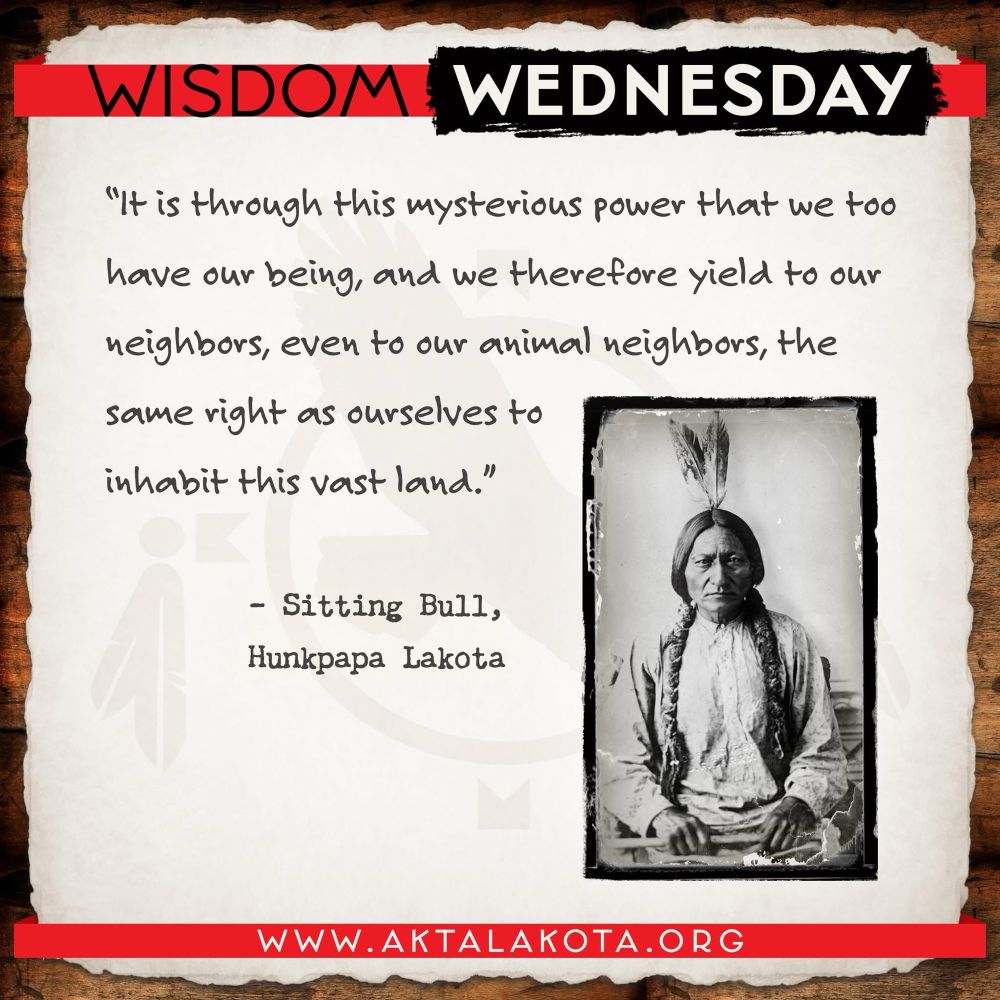 WISDOM WEDNESDAY
“It is through this mysterious power that we too
have our being, and we therefore yield to our
neighbors, even to our animal neighbors, the
same right as ourselves to
inhabit this vast land.”
- Sitting Bull,
Hunkpapa Lakota
WWW.AKTALAKOTA.ORG